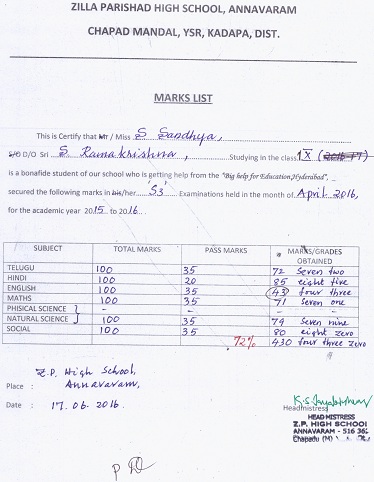 ZILLA PARISHAD HIGH SCHOOL, ANNAVARAM
CHAPAD MANDAL, YSR, KADAPA, DIST.
MARKS LIST
This is Certify that Mr / Miss S Sandhya,
S/O D/O Sri S. Ramakrishna, Studying in the class IX (2016-17)
is a bonafide student of our school who is getting help from the "Big help for Education,Hyderabad",
secured the following marks in his/her 'S3' Examinations held in the month of April 2016,
for the academic year 2015 to 2016.
SUBJECT TOTAL MARKS PASS MARKS MARKS/GRADES OBTAINED
TELUGU 100 35 72 Seven two
HINDI 100 20 85 eight five
ENGLISH 100 35 43 four three
MATHS 100 35 71 Seven one
PHISICAL SCIENCE } - - - -
NATURAL SCIENCE } 100 35 79 Seven nine
SOCIAL 100 35 80 eight zero
72% 430 four three zero
Z.P. High School,
Place : Annavaram,
Date : 17.06.2016.
Headmistress
HEAD MISTRESS
Z.P. HIGH SCHOOL
ANNAVARAM - 516 362
Chapadu (M)